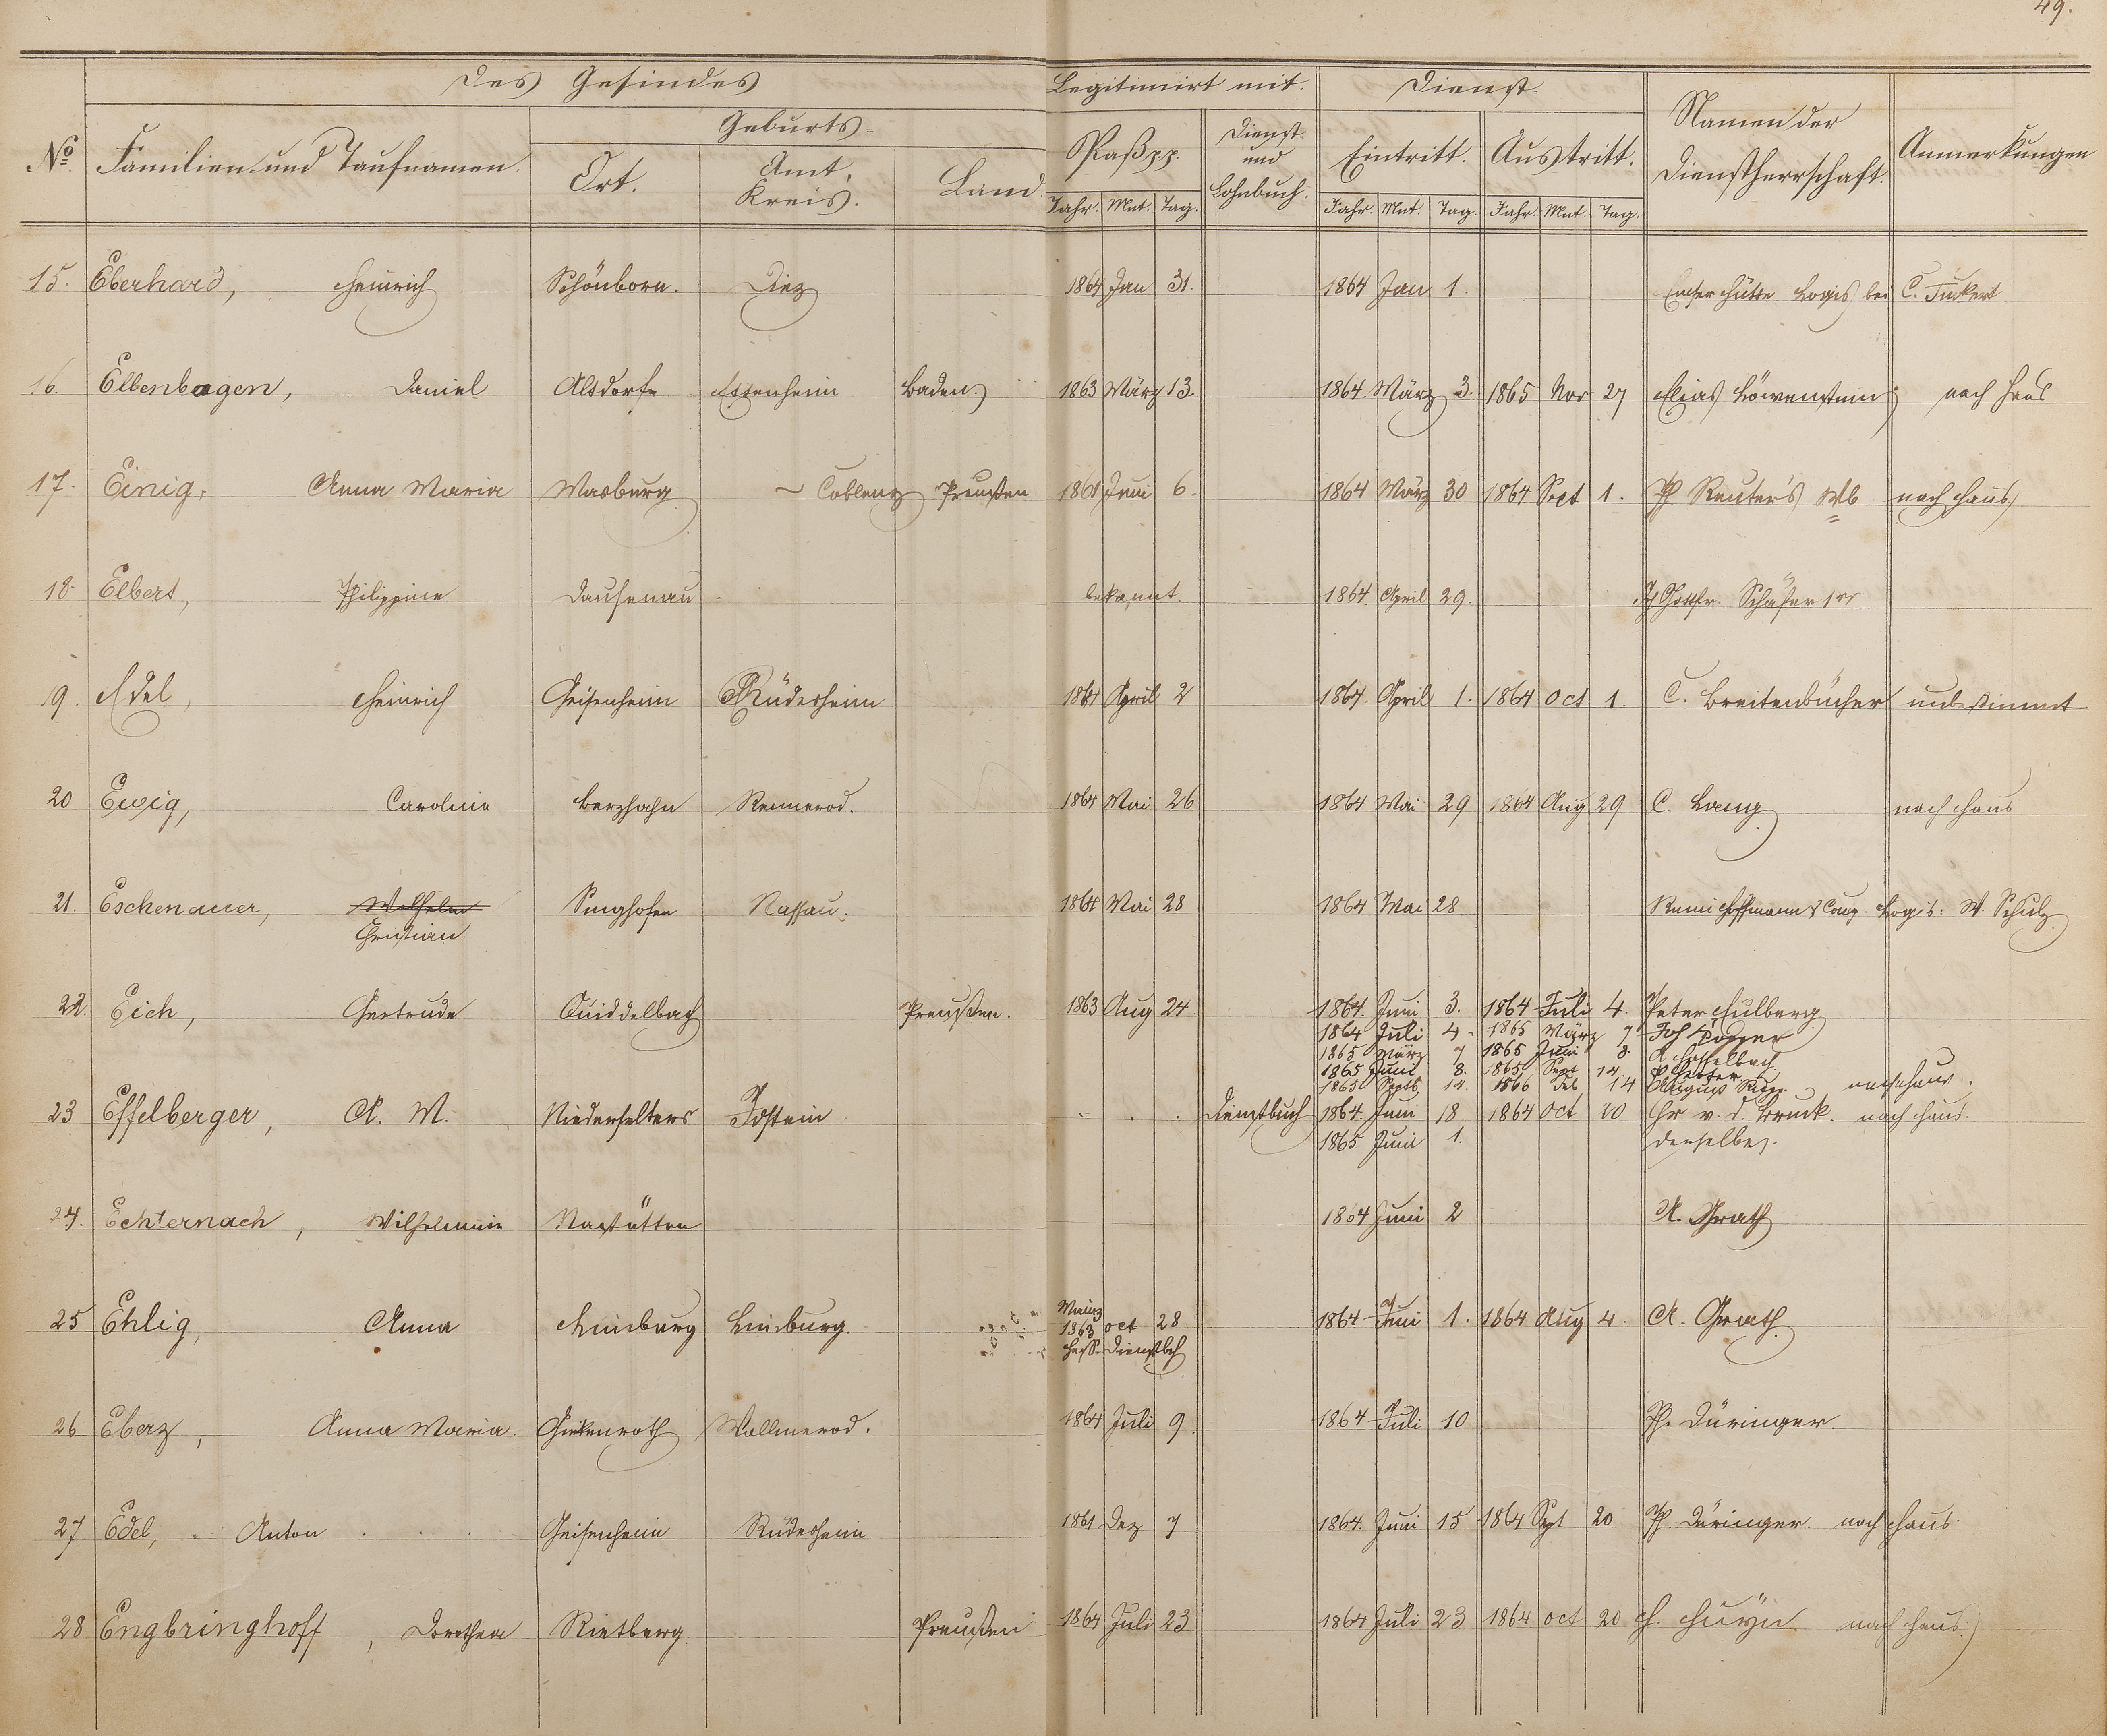 49.
Des Gesindes
Legitimirt mit.
Dienst.
No.
Familien- und Taufnamen.
Geburts-
Ort.
Amt, Kreis.
Land.
Paß pp.
Dienst- und Lohnbuch.
Eintritt.
Austritt.
Namen der Dienstherrschaft.
Anmerkungen
Jahr. Mnt. Tag. Jahr. Mnt. Tag. Jahr. Mnt. Tag.
15. Eberhard, Heinrich Schönborn. Diez 1864 Jan 31. 1864 Jan 1. Emser Hütte Logis bei C. Tuckert
16. Ellenbogen, Daniel Altdorf Ettenheim Baden 1863 März 13. 1864. März 3. 1865 Nov 27 Elias Löwenstein nach Haus
17. Einig, Anna Maria Coblenz Preußen Juni 6. 1864 März 30 1864 Sept 1. Ph Reuter's Wb nach Haus
18. Elbert, Philippine Dausenau bekannt. 1864. April 29. Gottfr. Schäfer 1r
19. Edel, Heinrich Geisenheim Rüdesheim 1864 April 2 1864. April 1. 1864 Oct 1. C. Breitenbücher unbestimmt
20 Ewig, Caroline Berzhahn Rennerod. 1864 Mai 26 1864 Mai 29 1864 Aug 29 C. Lang nach Haus
21. Eschenauer, Wilhelm Singhofen Nassau. 1864 Mai 28 1864 Mai 28 Hoffmann's Logis: W. Schulz
Christian
22. Eich, Gertrude Quiddelbach Preußen. 1863 Aug 24 1864. Juni 3. 1864 Juli 4. Peter Hülberg
1864 Juli 4. 1865 März 7 Joh
1865 März 7 1865 Juni 8. A Hasselbach
1865 Juni 8. 1865 Sept 14.
1865 Septb 14. 1866 Feb 14 August nach Haus.
23 Effelberger, A. M. Niederselters Idstein. Dienstbuch 1864. Juni 18 1864 Oct 20 Hr v. d. Bruck. nach Haus.
1865 Juni 1. derselbe.
24. Echternach, Wilhelmine Nastätten 1864 Juni 2 A. Grath
25 Ehlig, Anna Limburg Limburg. Mainz 1863 Oct 28 1864 Juni 1. 1864 Aug 4. A. Grath.
Hess. Dienstbch
26 Eberz, Anna Maria. Girkenroth Wallmerod. 1864 Juli 9. 1864 Juli 10 Ph. Düringer.
27 Edel, Anton Geisenheim Rüdesheim 1861 Dez 7 1864. Juni 15 1864 Spt 20 Ph. Düringer. nach Haus.
28 Engbringhoff, Dorothea Rietberg. Preußen 1864 Juli 23 1864 Juli 23 1864 Oct 20 H. Huyn. nach Haus.